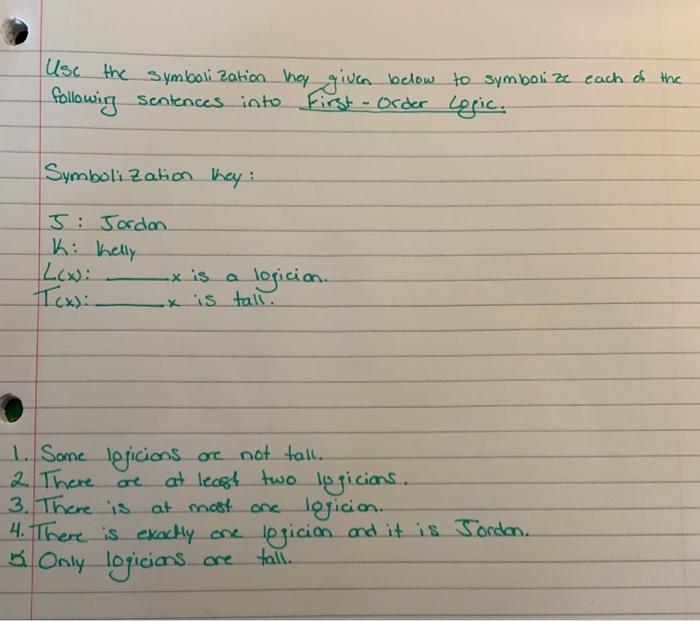 Use the symbolization key given below to symbolize each of the
following sentences into First-Order Logic.
Symbolization key:
J: Jordan
K: Kelly
L(x): ______x is a logician.
T(x): ______x is tall.
1. Some logicians are not tall.
2. There are at least two logicians.
3. There is at most one logician.
4. There is exactly one logician and it is Jordan.
5. Only logicians are tall.